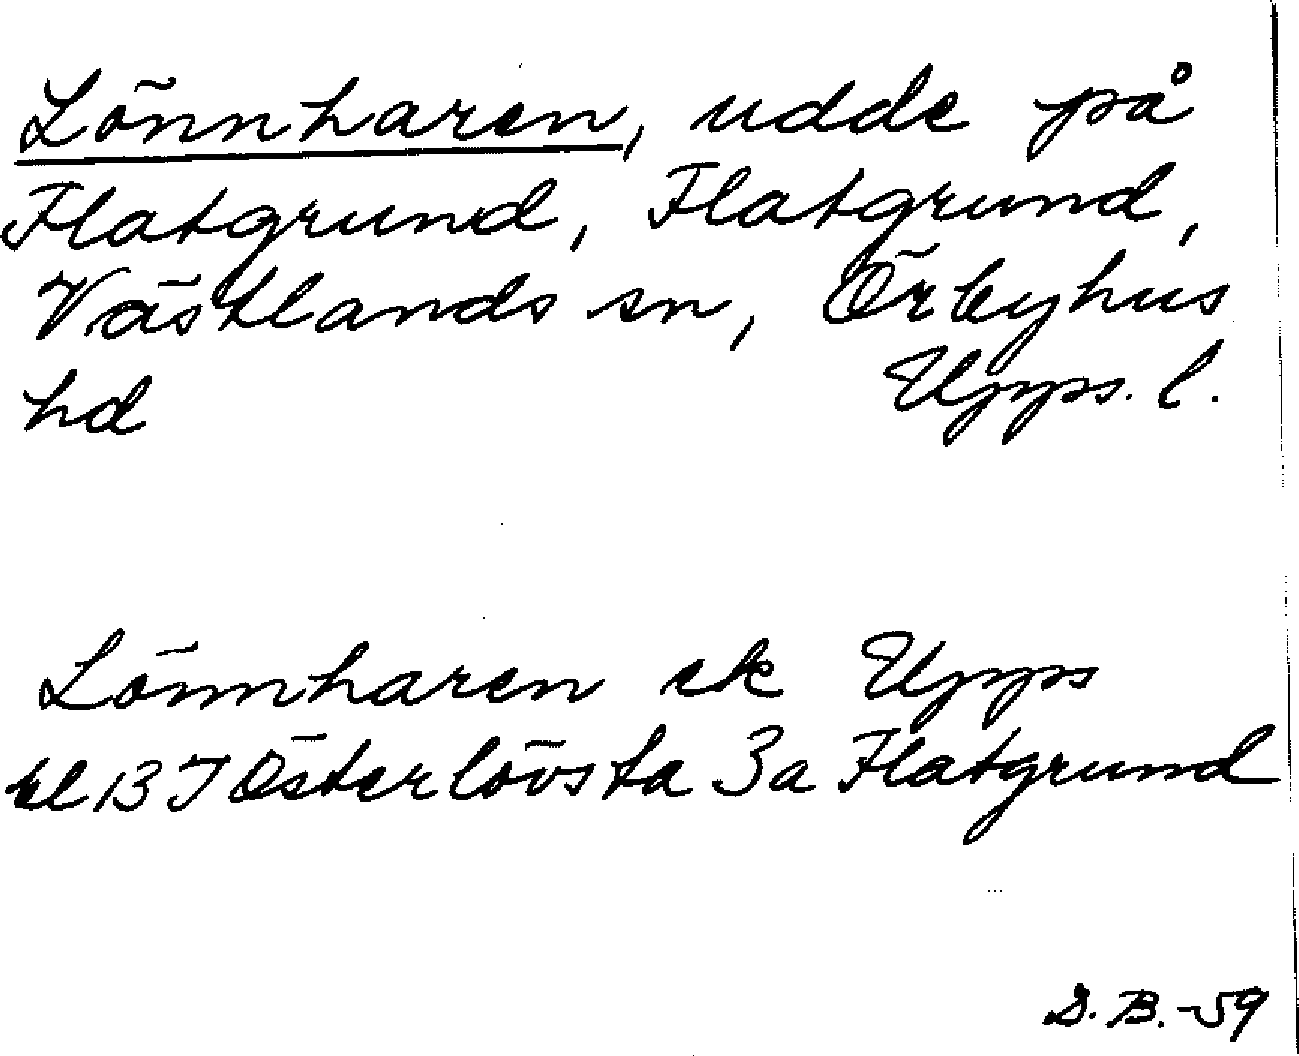 Lönnharen, udde på
Flatgrund, Flatgrund,
Västlands sn, Örbyhus
hd Upps. l.
Lönnharen ek Upps
bl 13 I Österlövsta 3a Flatgrund
S. B. -59